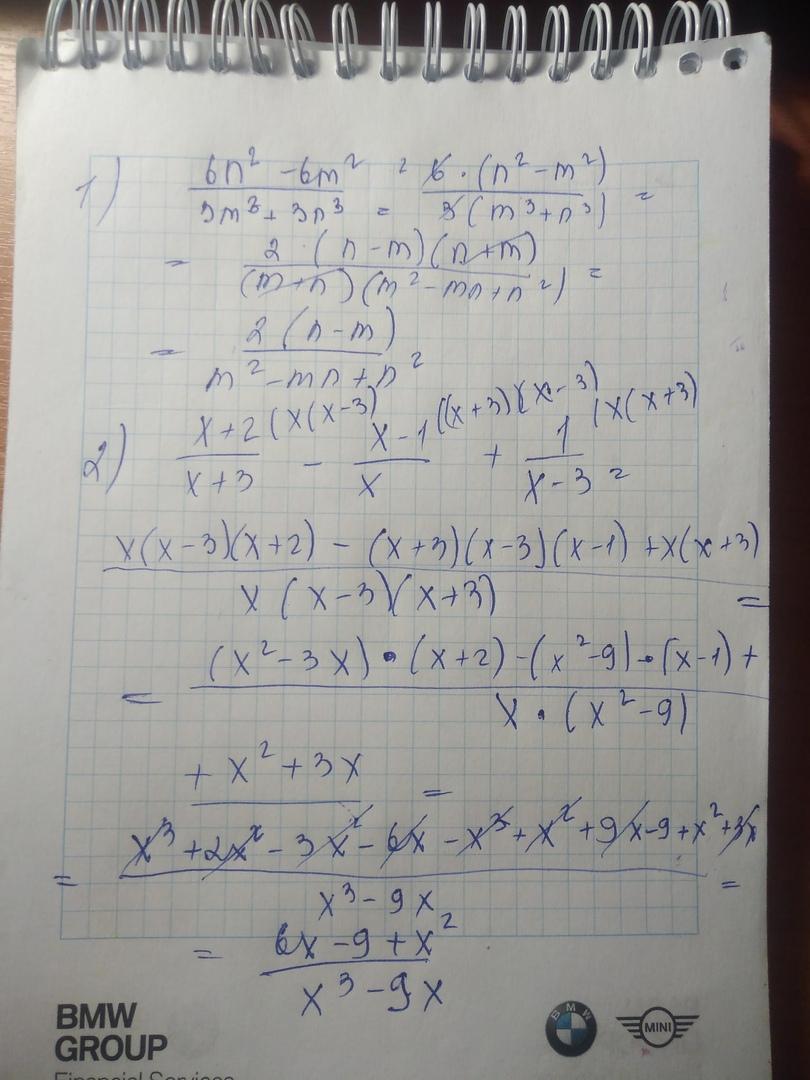 1) (6n² - 6m²)/(3m³ + 3n³) = 6·(n² - m²)/3(m³ + n³) =
= 2·(n - m)(n + m)/(m + n)(m² - mn + n²) =
= 2(n - m)/(m² - mn + n²)
2) (x + 2)/(x + 3) (x(x-3) - (x - 1)/x ((x+3)(x-3) + 1/(x - 3) (x(x+3) =
x(x-3)(x+2) - (x+3)(x-3)(x-1) + x(x+3)
x(x-3)(x+3) =
= (x² - 3x)·(x+2) - (x² - 9)·(x-1) +
x·(x² - 9)
+ x² + 3x =
= x³ + 2x² - 3x² - 6x - x³ + x² + 9x - 9 + x² + 3x
x³ - 9x =
= (6x - 9 + x²)/(x³ - 9x)
BMW
GROUP
Financial Services
BMW
MINI